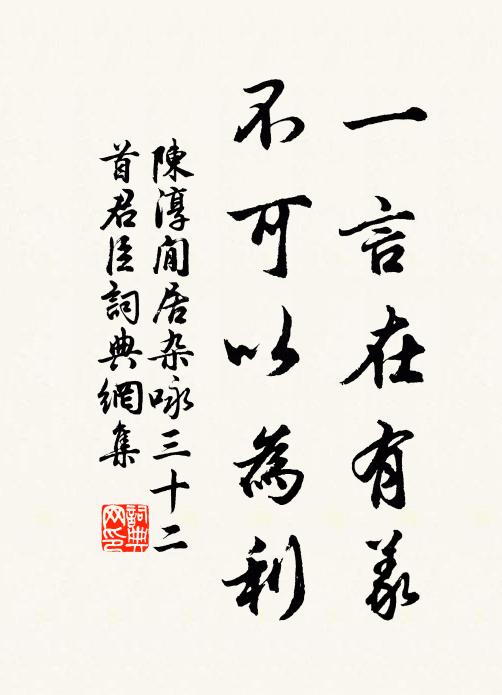 一言在有義
不可以為利
陳淳閒居杂咏三十二
首君臣詞典網集
詞典
网印